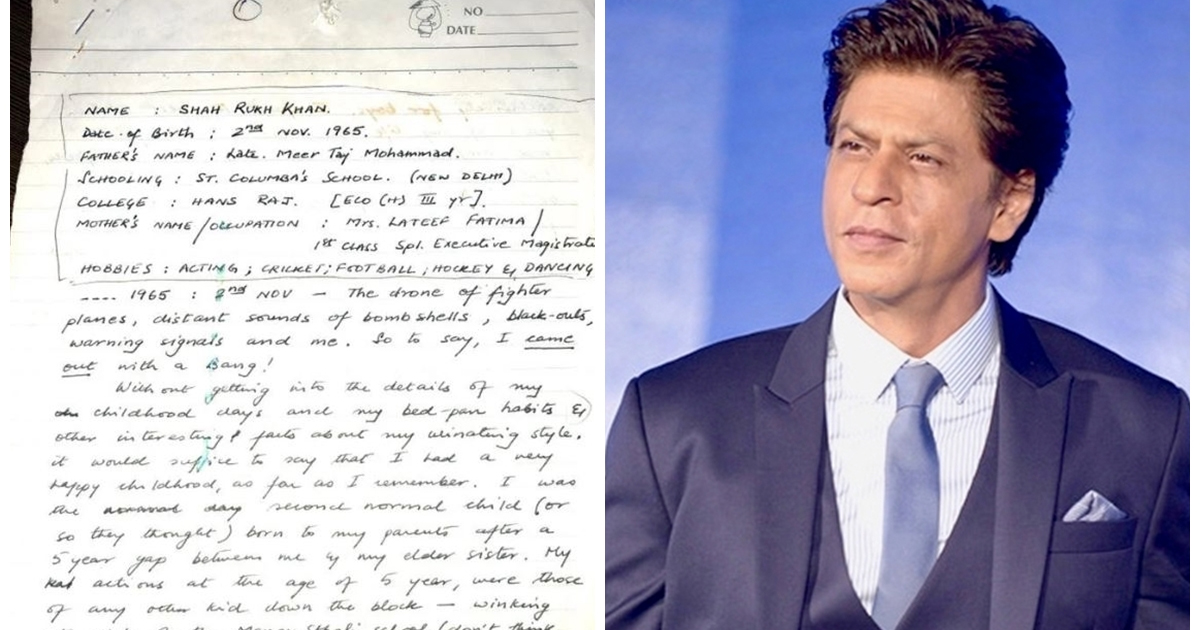 NO
DATE
NAME : SHAH RUKH KHAN.
Date of Birth : 2nd NOV. 1965.
FATHER'S NAME : Late. Meer Taj Mohammad.
SCHOOLING : ST. COLUMBA'S SCHOOL. (NEW DELHI)
COLLEGE : HANS RAJ. [ECO (H) III yr].
MOTHER'S NAME/OCCUPATION : Mrs. LATEEF FATIMA /
1st CLASS Spl. Executive Magistrate
HOBBIES : ACTING ; CRICKET ; FOOTBALL ; HOCKEY & DANCING
---- 1965 : 2nd NOV — The drone of fighter
planes, distant sounds of bombshells, black-outs,
warning signals and me. So to say, I came
out with a Bang!
Without getting into the details of my
childhood days and my bed-pan habits &
other interesting facts about my urinating style,
it would suffice to say that I had a very
happy childhood, as far as I remember. I was
the second normal child (or
so they thought) born to my parents after a
5 year gap between me & my elder sister. My
actions at the age of 5 year, were those
of any other kid down the block — winking
school (don't think